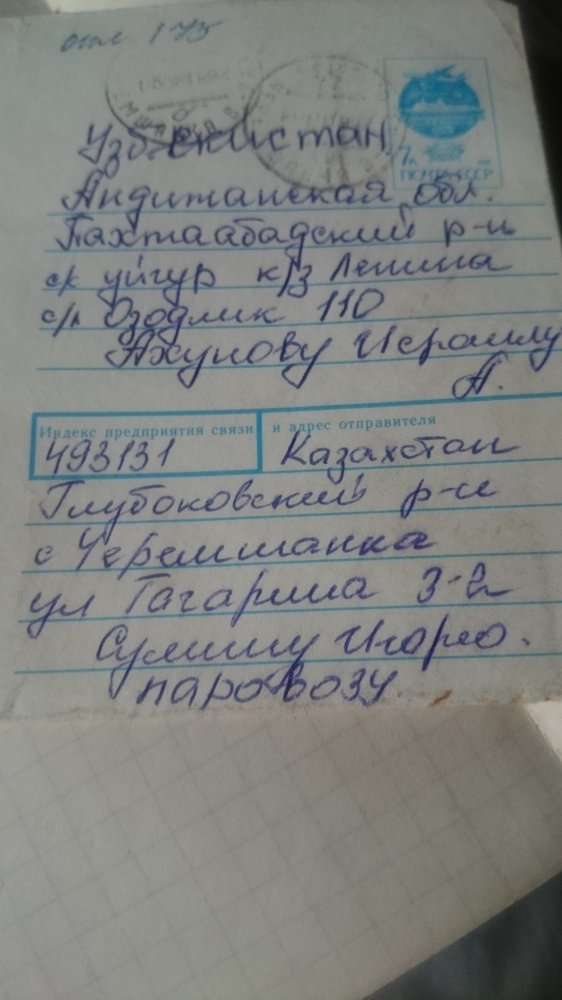 опл. 175
7к
ПОЧТА СССР
Узбекистан
Андижанская обл.
Пахтаабадский р-н
с/с уйгур к/з Ленина
с/п Озодлик 110
Ахунову Исраилу
А.
Индекс предприятия связи и адрес отправителя
493131 Казахстан
Глубоковский р-н
с Черемшанка
ул Гагарина 3-2
Сулиму Игорю.
паровозу.